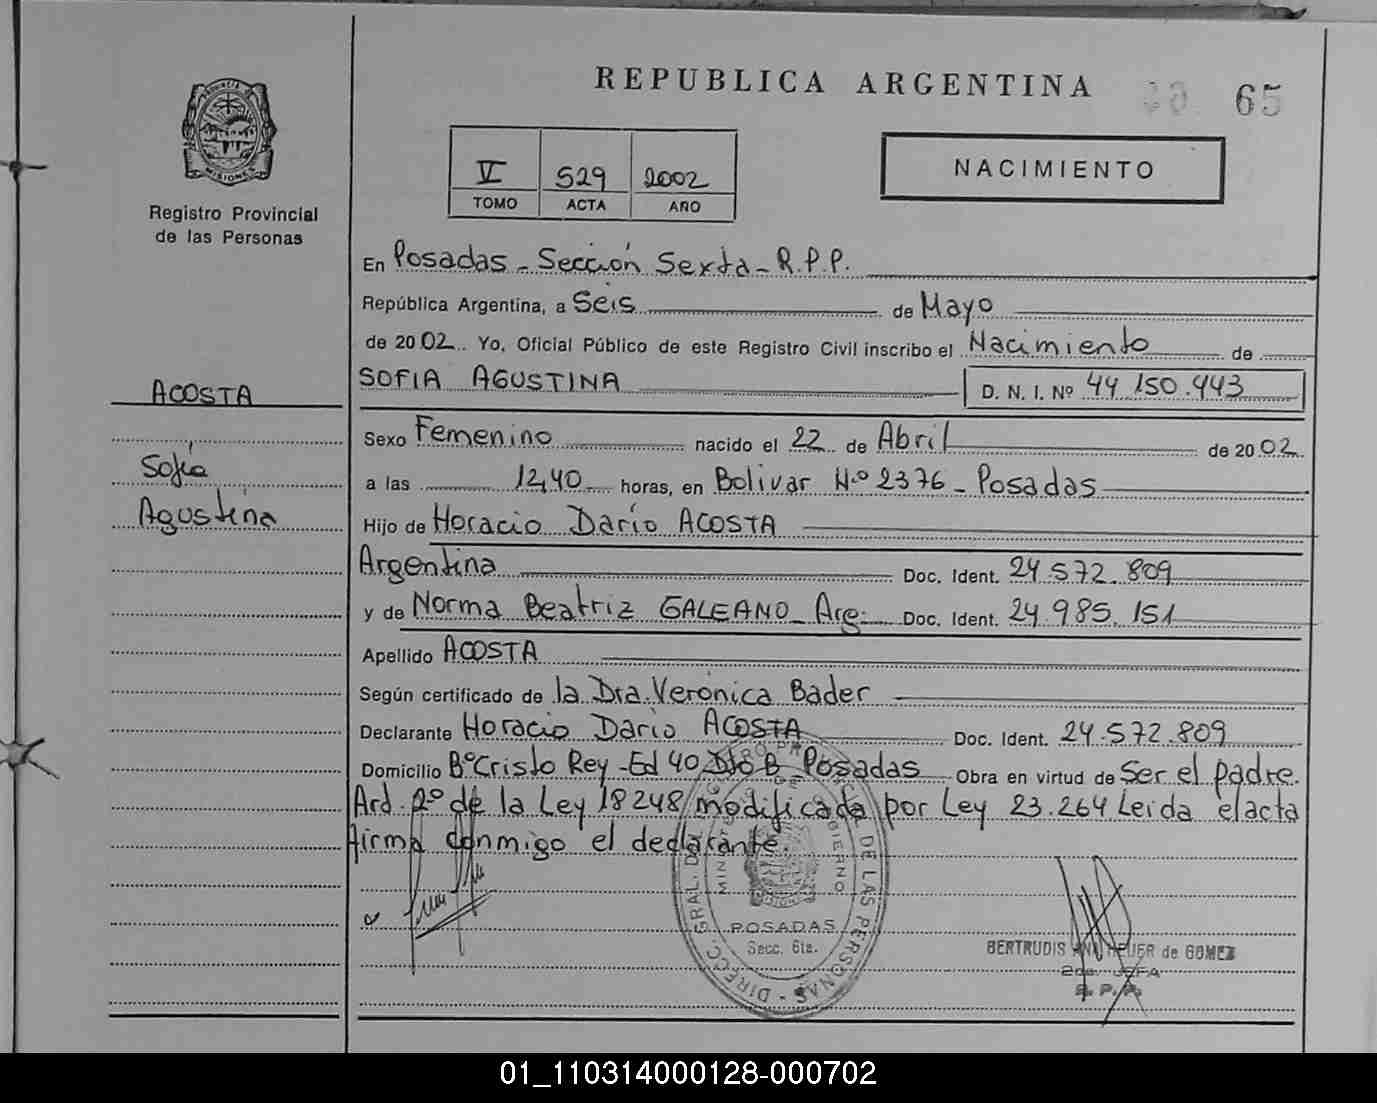 REPUBLICA ARGENTINA
65
PROVINCIA DE
MISIONES
Registro Provincial
de las Personas
V 529 2002
TOMO ACTA AÑO
NACIMIENTO
En Posadas - Sección Sexta - R.P.P.
República Argentina, a Seis de Mayo
de 2002. Yo, Oficial Público de este Registro Civil inscribo el Nacimiento de
SOFIA AGUSTINA D. N. I. Nº 44.150.443
ACOSTA
Sofía
Agustina
Sexo Femenino nacido el 22 de Abril de 2002
a las 12,40 horas, en Bolivar Nº 2376 - Posadas
Hijo de Horacio Darío ACOSTA
Argentina Doc. Ident. 24.572.809
y de Norma Beatriz GALEANO - Arg. Doc. Ident. 24.985.151
Apellido ACOSTA
Según certificado de la Dra. Verónica Bader
Declarante Horacio Dario ACOSTA Doc. Ident. 24.572.809
Domicilio Bº Cristo Rey - Ed 40 Dto B - Posadas Obra en virtud de Ser el padre.
Ard. 2º de la Ley 18248 modificada por Ley 23.264 Leida el acta
firma conmigo el declarante.
DIRECC. GRAL. DE LAS PERSONAS
GOBIERNO
POSADAS
Secc. 6ta.
BERTRUDIS ANA HEUER de GOMEZ
2da. JEFA
R. P. P.
01_110314000128-000702